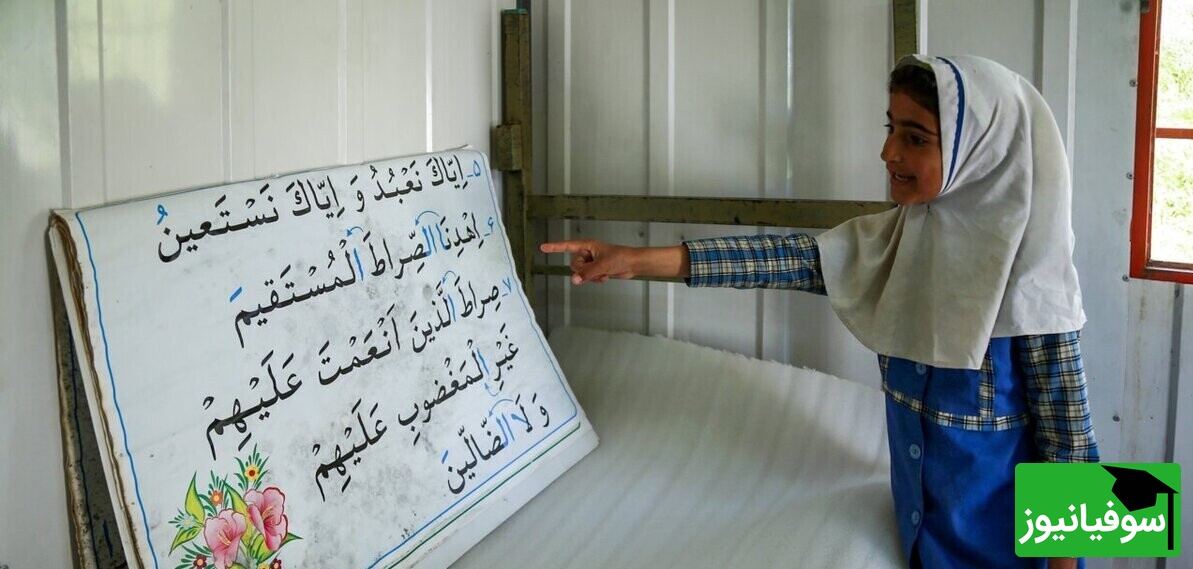 ۵- اِیّاكَ نَعْبُدُ وَ اِیّاكَ نَسْتَعینُ
۶- اِهْدِنَا الصِّراطَ الْمُسْتَقیمَ
۷- صِراطَ الَّذینَ اَنْعَمْتَ عَلَیْهِمْ
غَیْرِ الْمَغْضوبِ عَلَیْهِمْ
وَ لَا الضّالّینَ
سوفیانیوز